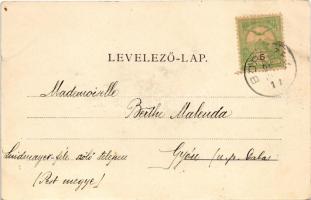 LEVELEZŐ-LAP.
Mademoiselle
Berthe Malenda
Lindmayer-féle szőlő telepen
Gyón (u.p. Dabas)
(Pest megye)